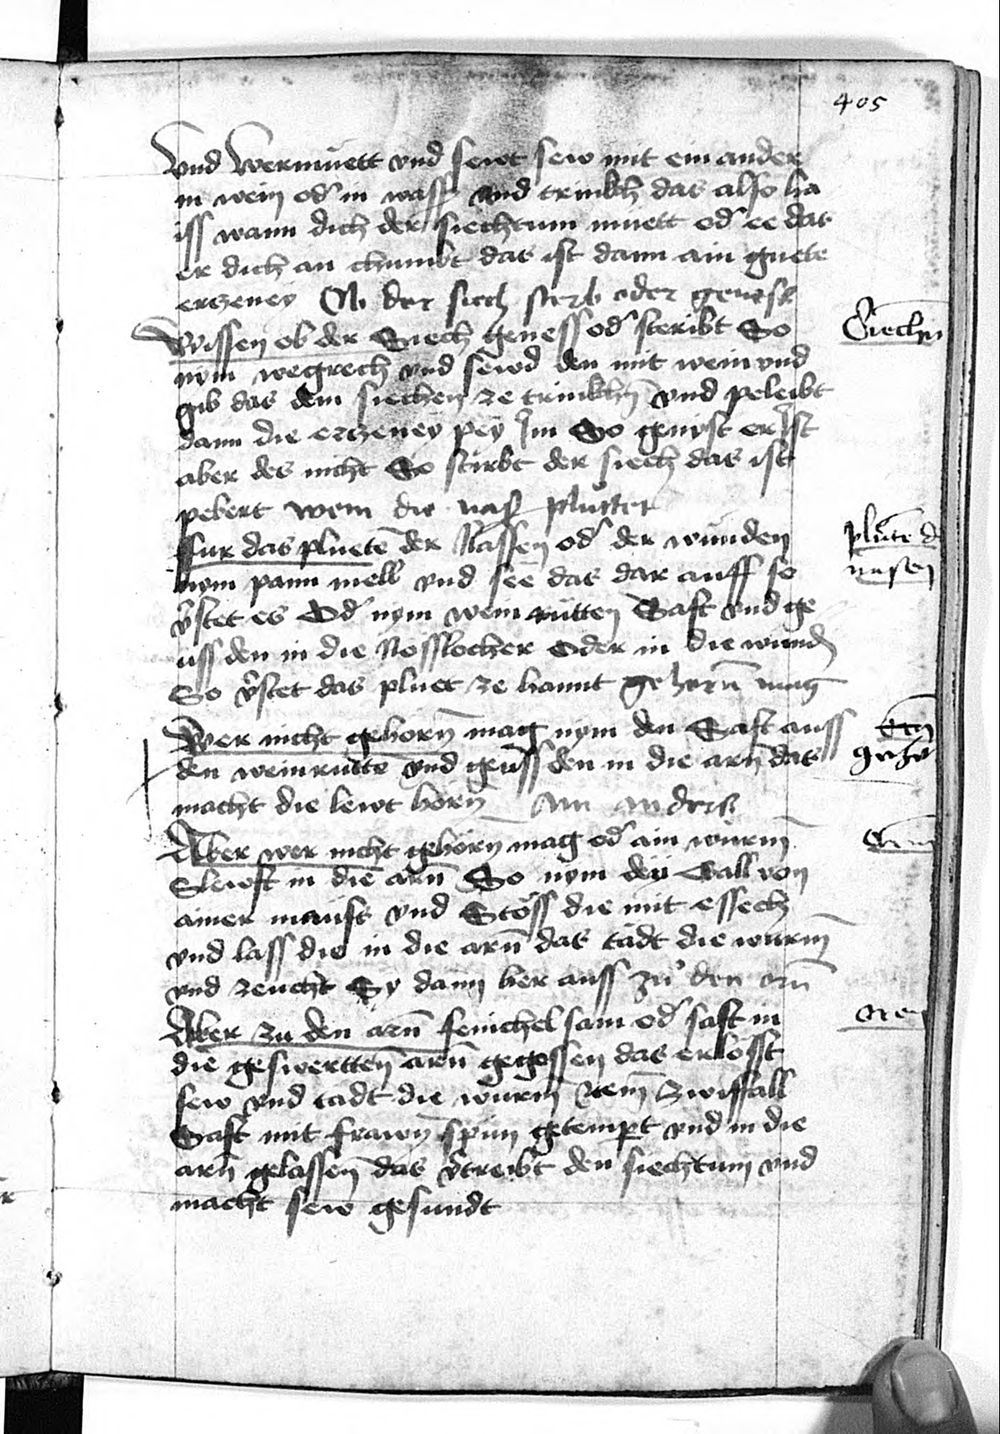 405
Vnd Wermuett vnd sewt sew mit ein ander
in wein od' in wass' vnd trinkch das also ha
iss wann dich der siechtum muett od' ee das
er dich an chumbt das ist dann ain guete
ertzeney Ob der siech sterb oder genese
Wissen ob der Siech geness od' steribt So
nym wegrech vnd sewd den mit wein vnd
gib das dem siechen ze trinkchn̄ vnd peleibt
dann die ertzeney pey Im So genyst er Ist
aber des nicht So stirbt der siech das ist
pebert wem die nas plüttet
Siechn
ffur das pluetē der Nassen od' der wunden
nym pann mell vnd see das dar auff so
v'stet es Od' nym wein rutten Saft vnd ge
uss den in die Nosslocher oder in die wunden
So v'stet das pluet ze hannt gehorn̄ mag
plutē d
nasen
Wer nicht gehorn̄ mag nym den Saft auss
den weinruttē vnd geuss den in die arn̄ das
macht die lewt horn̄ Ain anders
gehor
Aber wer nicht gehorn̄ mag od' ain wurm̄
Slewft in die arn̄ So nym die Gall von
ainer mauss vnd Stoss die mit essech
vnd lass die in die arn̄ das tadt die wurm̄
vnd zeucht Sy dann her auss zu den orn̄
Aber zu den arn̄ fenichel sam od' saft in
die geswertten arn̄ gegossen das erlosst
sew vnd tadt die wurm̄ Item Zwiffall
Saft mit frawn̄ spun getemp̄t vnd in die
arn̄ gelassen das v'treibt den siechtum vnd
macht sew gesundt